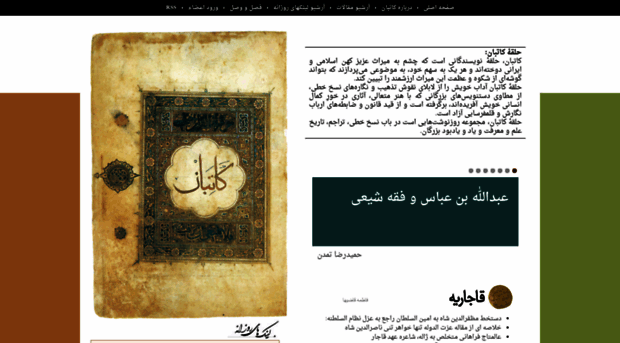 صفحه اصلی • درباره کاتبان • آرشیو مقالات • آرشیو لینکهای روزانه • فصل و وصل • ورود اعضاء • <<R
حلقهٔ کاتبان:
کاتبان، حلقهٔ نویسندگانی است که چشم به میراث عزیز کهن اسلامی و
ایرانی دوخته‌اند و هر یک به سهم خود، به موضوعی می‌پردازند که بتواند
گوشه‌ای از شکوه و عظمت این میراث ارزشمند را تبیین کند.
حلقهٔ کاتبان آداب خویش را از لابلای نقوش تذهیب و نگاره‌های نسخ خطی،
از مطاوی دستنویس‌های بزرگانی که با هنر متعالی، آثاری در خور کمال
انسانی خویش آفریده‌اند، برگرفته است و از قید قانون و ضابطه‌های ارباب
نگارش و قلمفرسایی آزاد است.
حلقهٔ کاتبان، مجموعه روزنوشت‌هایی است در باب نسخ خطی، تراجم، تاریخ
علم و معرفت و یاد و یادبود بزرگان.
کاتبان
عبدالله بن عباس و فقه شیعی
حمیدرضا تمدن
قاجاریه
فاطمه قاضیها
دستخط مظفرالدین شاه به امین السلطان راجع به عزل نظام السلطنه:
خلاصه ای از مقاله عزت الدوله تنها خواهر تنی ناصرالدین شاه
عالمتاج فراهانی متخلص به ژاله، شاعره عهد قاجار
لینک‌های روزانه